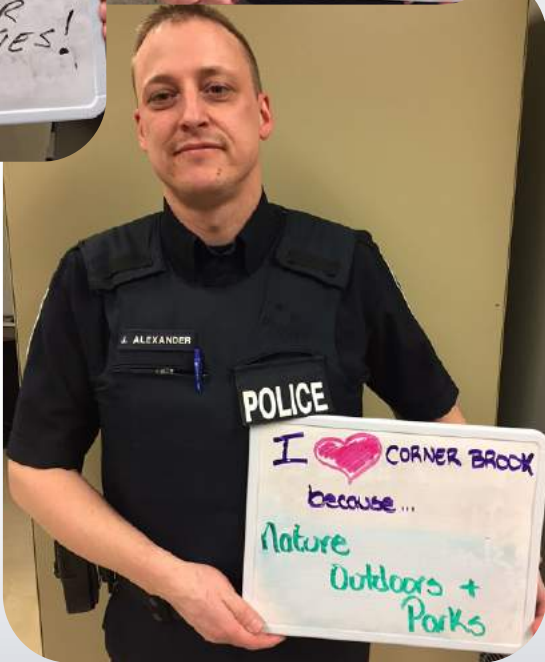 J. ALEXANDER
POLICE
I ♥ CORNER BROOK
because...
Nature
Outdoors +
Parks